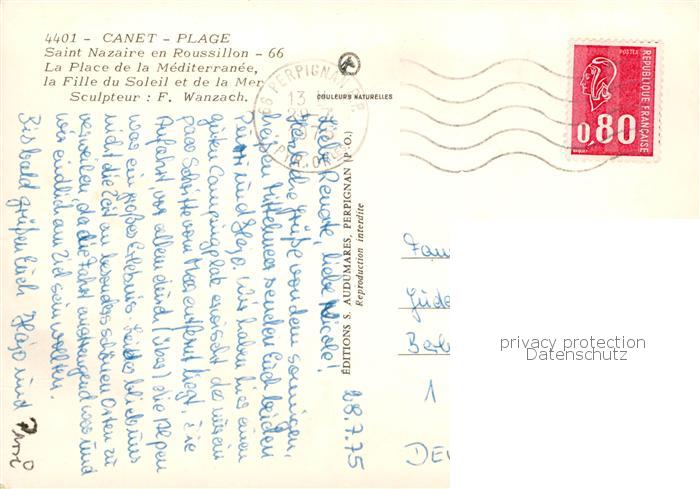 4401 - CANET - PLAGE
Saint Nazaire en Roussillon - 66
La Place de la Méditerranée,
la Fille du Soleil et de la Mer
Sculpteur : F. Wanzach.
COULEURS NATURELLES
66 PERPIGNAN R.P.
13
PYR. ORIENT
POSTES
REPUBLIQUE FRANÇAISE
0,80
ÉDITIONS S. AUDUMARES, PERPIGNAN (P.-O.)
Reproduction interdite
28.7.75
Liebe Renate, liebe Nicole!
Herzliche Grüße von dem sonnigen,
heißen Mittelmeer senden Euch beiden
und Hajo. Wir haben hier einen
guten Campingplatz erwischt, der nur ein
paar Schritte vom Meer entfernt liegt. Die
Anfahrt, vor allem durch die Alpen
war ein großes Erlebnis. Leider blieb uns
nicht die Zeit an besonders schönen Orten zu
verweilen, da die Fahrt anstrengend war und
wir endlich am Ziel sein wollten.
Bis bald grüßen Euch Hajo und
Fam
Berl
1
DEU
privacy protection
Datenschutz